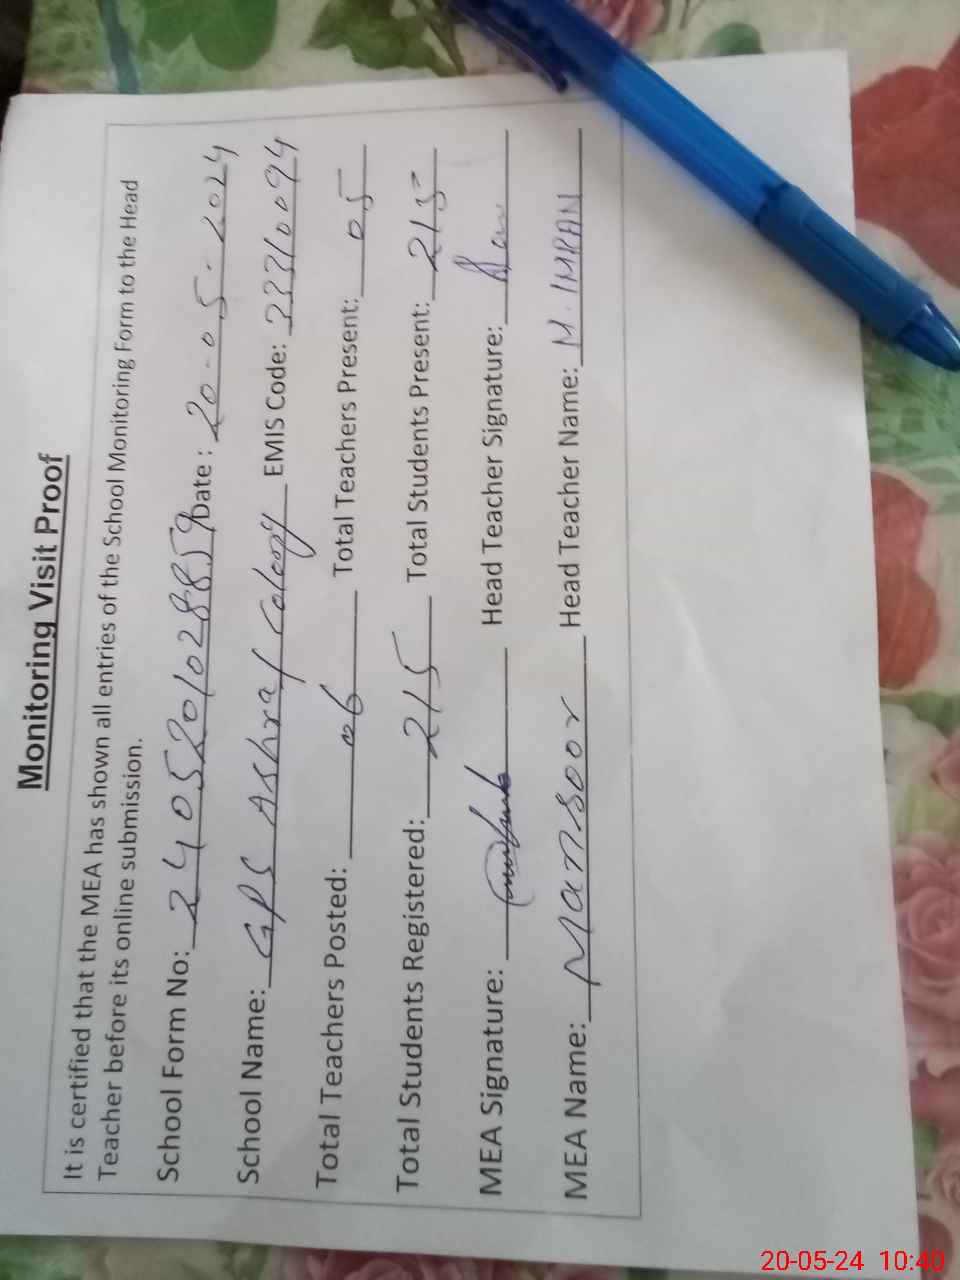 Monitoring Visit Proof
It is certified that the MEA has shown all entries of the School Monitoring Form to the Head
Teacher before its online submission.
School Form No: 2405201028859 Date: 20-05-2024
School Name: GPS Ashraf Colony EMIS Code: 33310094
Total Teachers Posted: 06 Total Teachers Present: 05
Total Students Registered: 215 Total Students Present: 215
MEA Signature: Head Teacher Signature:
MEA Name: Mansoor Head Teacher Name: M. IMRAN
20-05-24 10:40